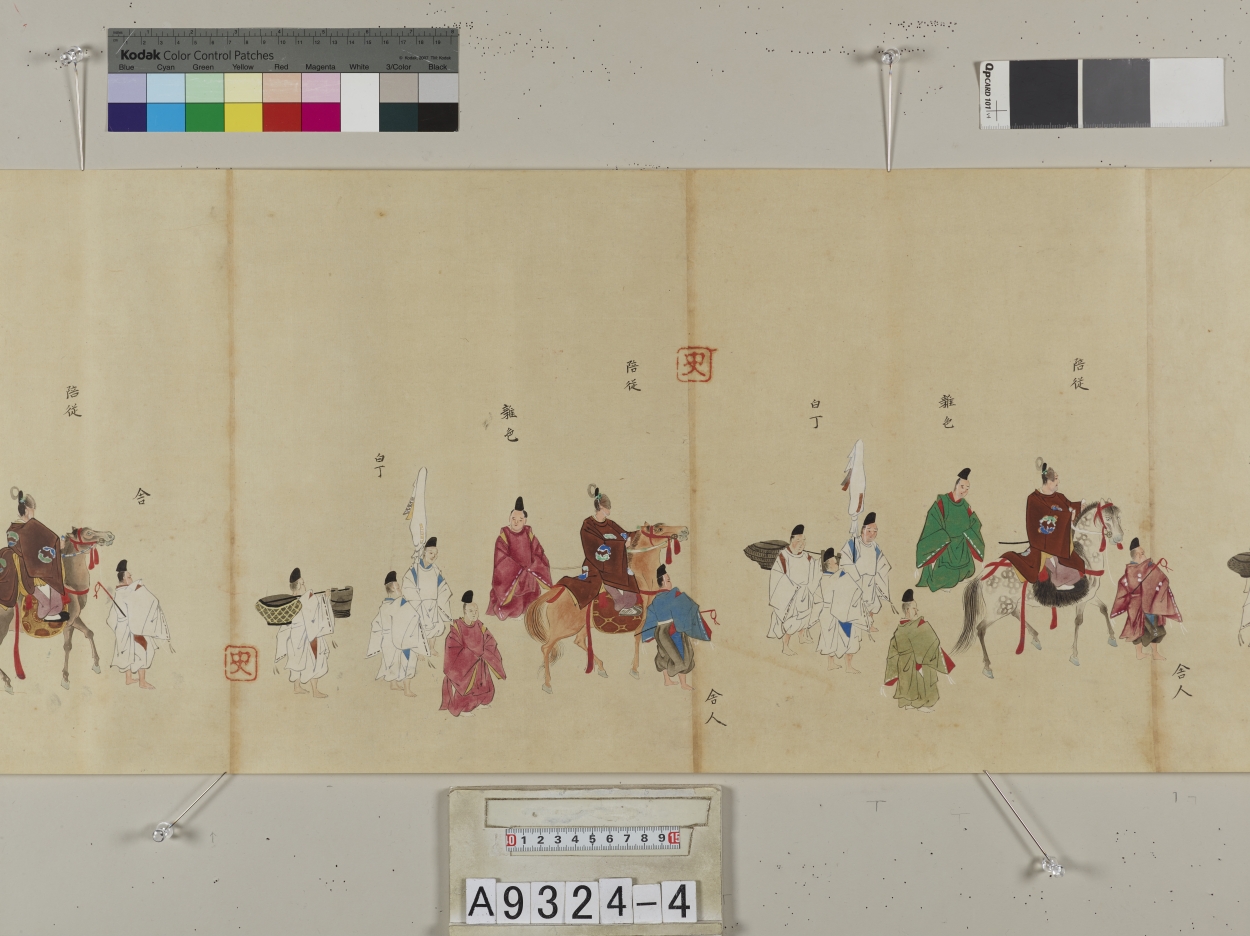 Kodak Color Control Patches
Blue Cyan Green Yellow Red Magenta White 3/Color Black
QPCARD 101
陪従
舎人
雑色
白丁
史
陪従
舎人
雑色
白丁
史
舎
陪従
0 1 2 3 4 5 6 7 8 9 15
A9324-4